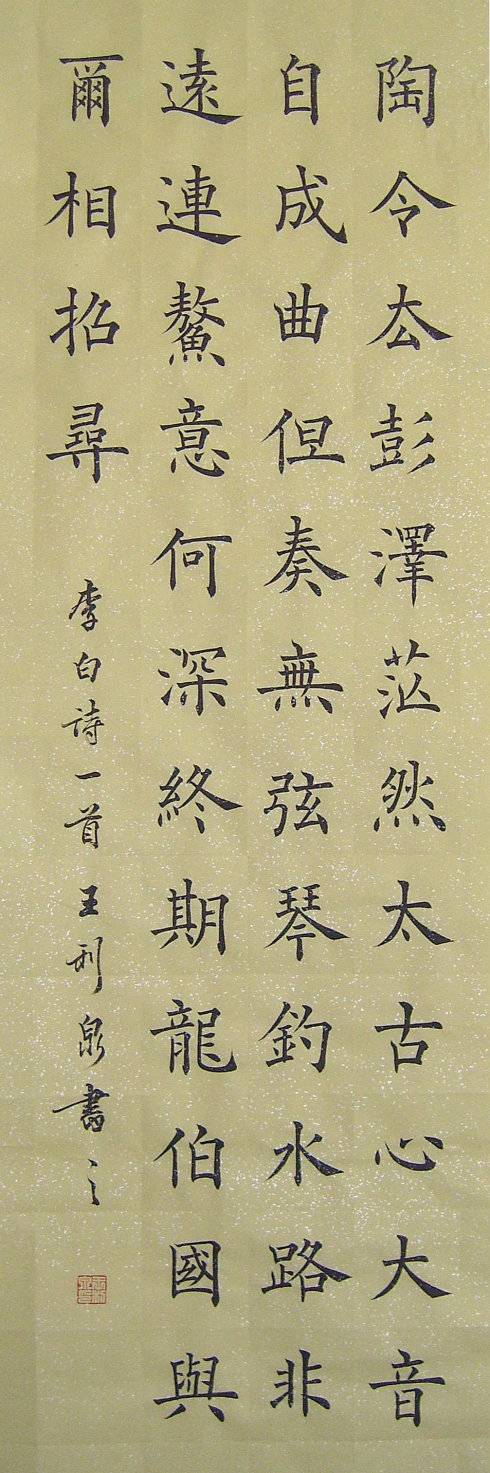 陶令去彭澤茫然太古心大音
自成曲但奏無弦琴釣水路非
遠連鰲意何深終期龍伯國與
爾相招尋
李白詩一首 王利泉書之